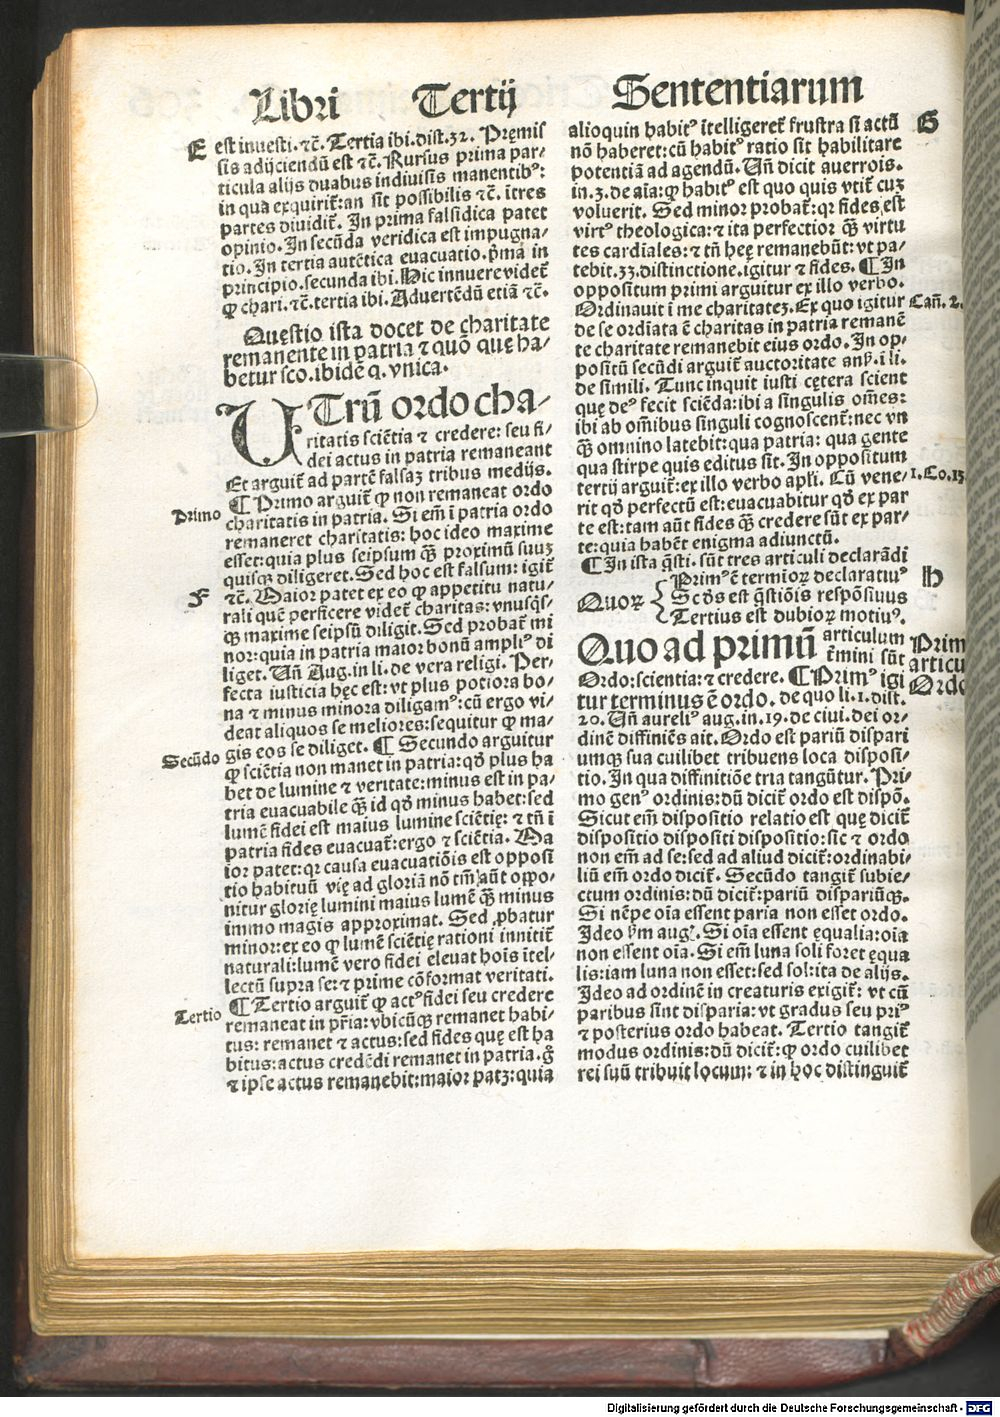 Libri Tertij Sententiarum
E
est inuesti. ⁊c̄. Tertia ibi. dist. 32. Pręmis
sis adijciendū est ⁊c̄. Rursus prima par⸗
ticula alijs duabus indiuisis manentibꝰ:
in qua exquirit̄: an sit possibilis ⁊c̄. ītres
partes diuidit̄. In prima falsidica patet
opinio. In secūda veridica est impugna⸗
tio. In tertia autētica euacuatio. p̄ma in
principio. secunda ibi. Hic innuere videt̄
ꝙ chari. ⁊c̄. tertia ibi. Aduertēdū etiā ⁊c̄.
Quęstio ista docet de charitate
remanente in patria ⁊ quō quę ha⸗
betur sco. ibidē q. vnica.
UTrū ordo cha⸗
ritatis sciētia ⁊ credere: seu fi⸗
dei actus in patria remaneant
Et arguit̄ ad partē falsaꝫ tribus medijs.
Primo
¶ Primo arguit̄ ꝙ non remaneat ordo
charitatis in patria. Si em̄ ī patria ordo
remaneret charitatis: hoc ideo maxime
esset: quia plus seipsum ꝙ̄ proximū suuꝫ
quisqꝫ diligeret. Sed hoc est falsum: igit̄
F
⁊c̄. Maior patet ex eo ꝙ appetitu natu⸗
rali quē perficere videt̄ charitas: vnusqs̄⸗
qꝫ maxime seipsū diligit. Sed probat̄ mi
nor: quia in patria maior bonū ampliꝰ di
liget. Uñ Aug. in li. de vera religi. Per⸗
fecta iusticia hęc est: vt plus potiora bo⸗
na ⁊ minus minora diligamꝰ: cū ergo vi⸗
deat aliquos se meliores: sequitur ꝙ ma⸗
gis eos se diliget. ¶ Secundo arguitur
Secūdo
ꝙ sciētia non manet in patria: qd̄ plus ha
bet de lumine ⁊ veritate: minus est in pa⸗
tria euacuabile ꝙ̄ id qd̄ minus habet: sed
lumē fidei est maius lumine sciētię: ⁊ tn̄ ī
patria fides euacuat̄: ergo ⁊ sciētia. Ma
ior patet: qr causa euacuatiōis est opposi
tio habituū vię ad gloriā nō tm̄ aūt oppo⸗
nitur glorię lumini maius lumē ꝙ̄ minus
immo magis approximat. Sed ꝓbatur
minor: ex eo ꝙ lumē sciētię rationi innitit̄
naturali: lumē vero fidei eleuat hoīs ītel⸗
lectū supra se: ⁊ prime cōformat veritati.
Tertio
¶ Tertio arguit̄ ꝙ actꝰ fidei seu credere
remaneat in pr̄ia: vbicūqꝫ remanet habi⸗
tus: remanet ⁊ actus: sed fides quę est ha
bitus: actus credēdi remanet in patria. g̊
⁊ ipse actus remanebit: maior patꝫ: quia
alioquin habitꝰ ītelligeret̄ frustra si actū
G
nō haberet: cū habitꝰ ratio sit habilitare
potentiā ad agendū. Uñ dicit auerrois.
in. 3. de aīa: ꝙ habitꝰ est quo quis vtit̄ cuꝫ
voluerit. Sed minor probat̄: qr fides est
virtꝰ theologica: ⁊ ita perfectior ꝙ̄ virtu
tes cardiales: ⁊ tn̄ heę remanebūt: vt pa⸗
tebit. 33. distinctione. igitur ⁊ fides. ¶ In
oppositum primi arguitur ex illo verbo.
Ordinauit ī me charitateꝫ. Ex quo igitur
Cañ. 2.
de se ordīata ē charitas in patria remanē
te charitate remanebit eius ordo. In op⸗
positū secūdi arguit̄ auctoritate anß. ī li.
de simili. Tunc inquit iusti cętera scient
quę deꝰ fecit sciēda: ibi a singulis om̄es:
ibi ab om̄ibus singuli cognoscent̄: nec vn
ꝙ̄ omnino latebit: qua patria: qua gente
qua stirpe quis editus sit. In oppositum
tertij arguit̄: ex illo verbo apl̄i. Cū vene⸗
1. Co. 13.
rit qd̄ perfectū est: euacuabitur qd̄ ex par
te est: tam aūt fides ꝙ̄ credere sūt ex par⸗
te: quia habēt enigma adiunctū.
¶ In ista q̄sti. sūt tres articuli declarādi
H
Quoꝝ
Primꝰ ē termioꝝ declaratiuꝰ
Scd̄s est q̄stiōis respōsiuus
Tertius est dubioꝝ motiuꝰ.
Quo ad primū articulum
t̄mini sūt
Prim
articu
Ordo
Ordo: scientia: ⁊ credere. ¶ Primꝰ igi
tur terminus ē ordo. de quo li. 1. dist.
20. Uñ aureliꝰ aug. in. 19. de ciui. dei or⸗
dinē diffiniēs ait. Ordo est pariū dispari
umqꝫ sua cuilibet tribuens loca disposi⸗
tio. In qua diffinitiōe tria tangūtur. Pri⸗
mo genꝰ ordinis: dū dicit̄ ordo est dispō.
Sicut em̄ dispositio relatio est quę dicit̄
dispositio dispositi dispositio: sic ⁊ ordo
non em̄ ad se: sed ad aliud dicit̄: ordinabi⸗
liū em̄ ordo dicit̄. Secūdo tangit̄ subie⸗
ctum ordinis: dū dicit̄: pariū dispariūqꝫ.
Si nēpe oīa essent paria non esset ordo.
Ideo ẜm augꝰ. Si oīa essent ęqualia: oīa
non essent oīa. Si em̄ luna soli foret ęqua
lis: iam luna non esset: sed sol: ita de alijs.
Ideo ad ordinē in creaturis exigit̄: vt cū
paribus sint disparia: vt gradus seu priꝰ
⁊ posterius ordo habeat. Tertio tangit̄
modus ordinis: dū dicit̄: ꝙ ordo cuilibet
rei suū tribuit locum: ⁊ in hoc distinguit̄
Digitalisierung gefördert durch die Deutsche Forschungsgemeinschaft - DFG